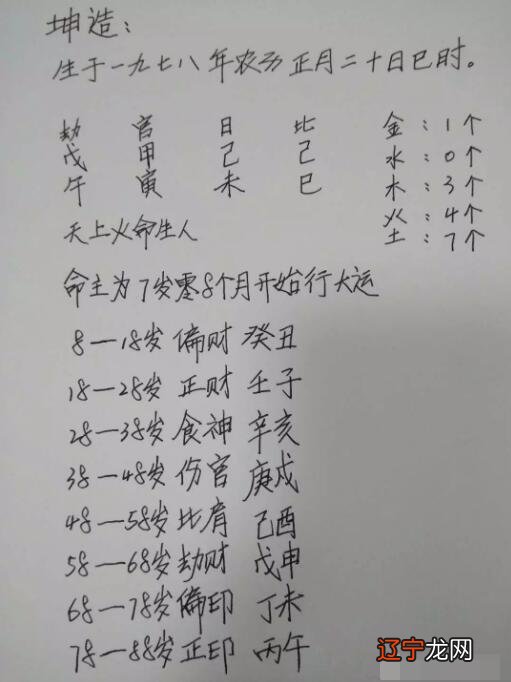 坤造：
生于一九七八年农历正月二十日巳时。
劫 官 日 比 金：1个
戊 甲 己 己 水：0个
午 寅 未 巳 木：3个
火：4个
天上火命生人 土：7个
命主为7岁零8个月开始行大运
8—18岁 偏财 癸丑
18—28岁 正财 壬子
28—38岁 食神 辛亥
38—48岁 伤官 庚戌
48—58岁 比肩 己酉
58—68岁 劫财 戊申
68—78岁 偏印 丁未
78—88岁 正印 丙午
辽宁龙网